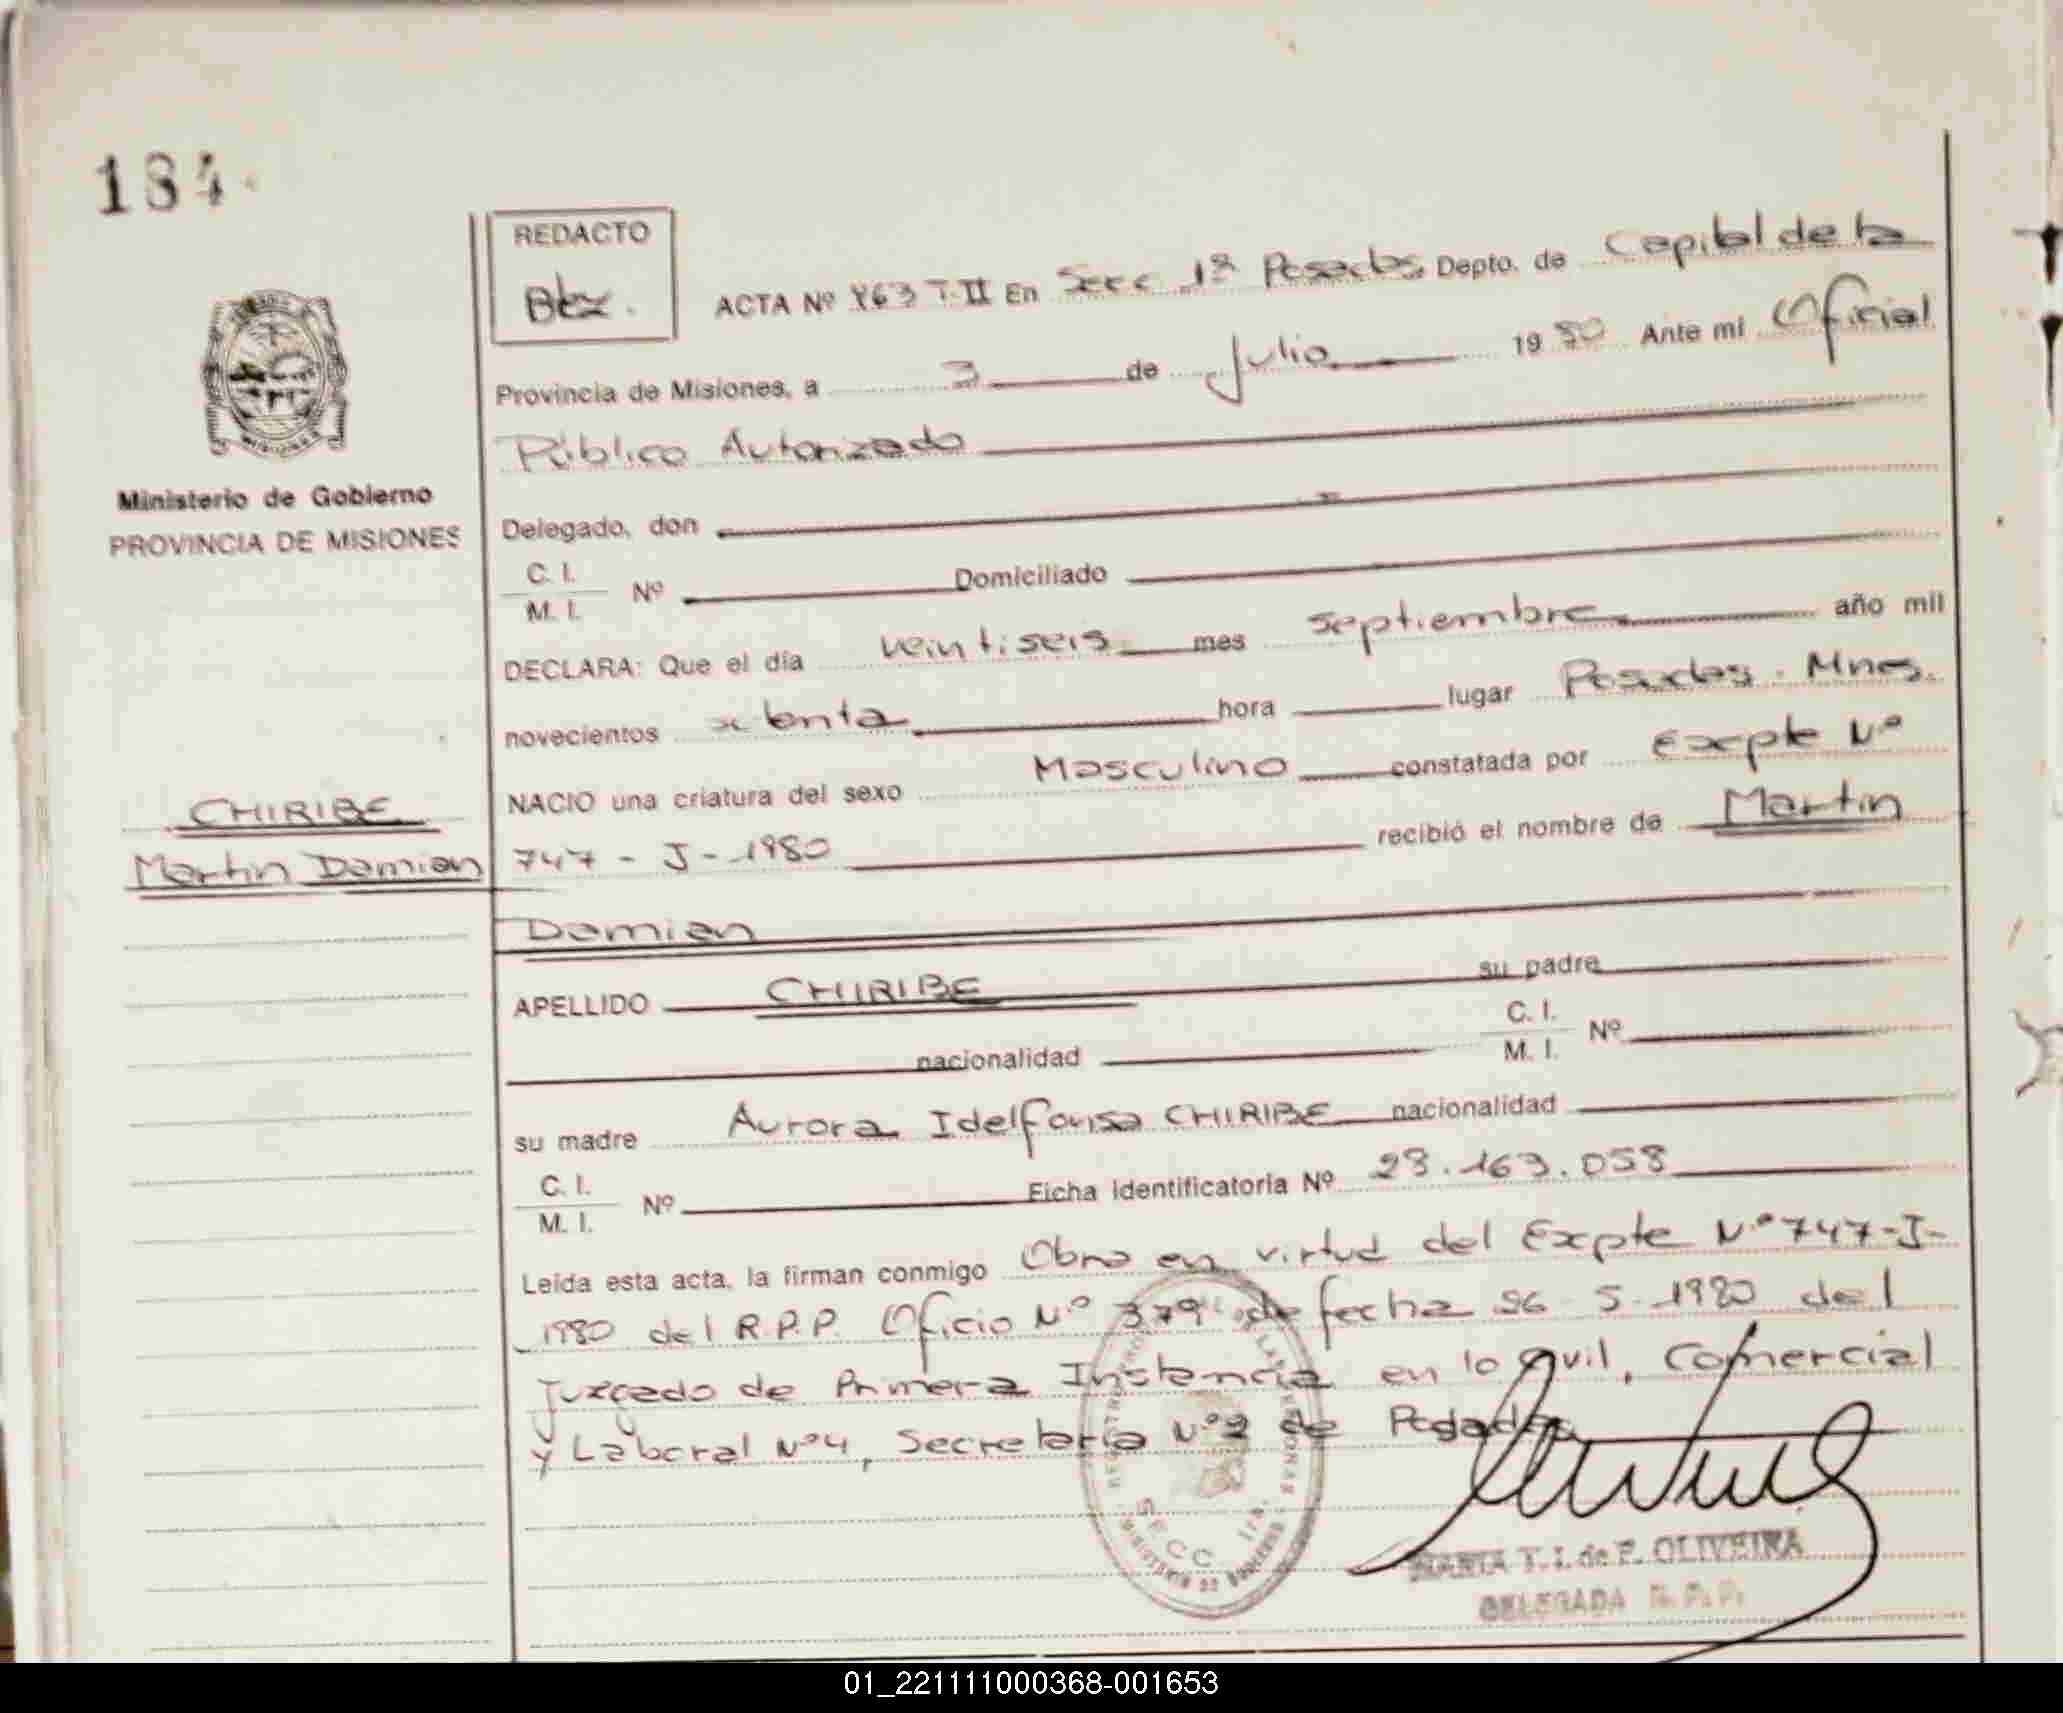 184
REDACTO
Btz.
ACTA Nº 863 T-II En Secc 1ª Posadas Depto. de Capital de la
Provincia de Misiones, a 3 de Julio 1980 Ante mí Oficial
Público Autorizado
Ministerio de Gobierno
PROVINCIA DE MISIONES
Delegado, don
C. I.
M. I. Nº Domiciliado
DECLARA: Que el día veintiseis mes septiembre año mil
novecientos setenta hora lugar Posadas. Mnes.
NACIO una criatura del sexo Masculino constatada por Expte Nº
CHIRIBE
Martin Damian
747 - J - 1980 recibió el nombre de Martin
Damian
APELLIDO CHIRIBE su padre
nacionalidad C. I.
M. I. Nº
su madre Aurora Idelfonsa CHIRIBE nacionalidad
C. I.
M. I. Nº Ficha Identificatoria Nº 28.163.058
Leída esta acta, la firman conmigo Obro en virtud del Expte Nº 747-J-
1980 del R.P.P. Oficio Nº 379 de fecha 26-5-1980 del
Juzgado de Primera Instancia en lo Civil, Comercial
y Laboral Nº4, Secretaria Nº2 de Posadas
SECC. 1ra.
MINISTERIO DE GOBIERNO
MARIA T. I. de F. OLIVEIRA
DELEGADA R. P. P.
01_221111000368-001653